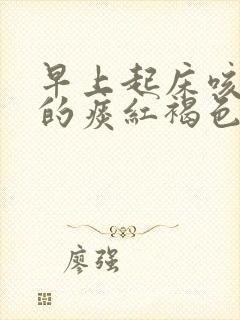 早上起床咳
的痰红褐色
廖强